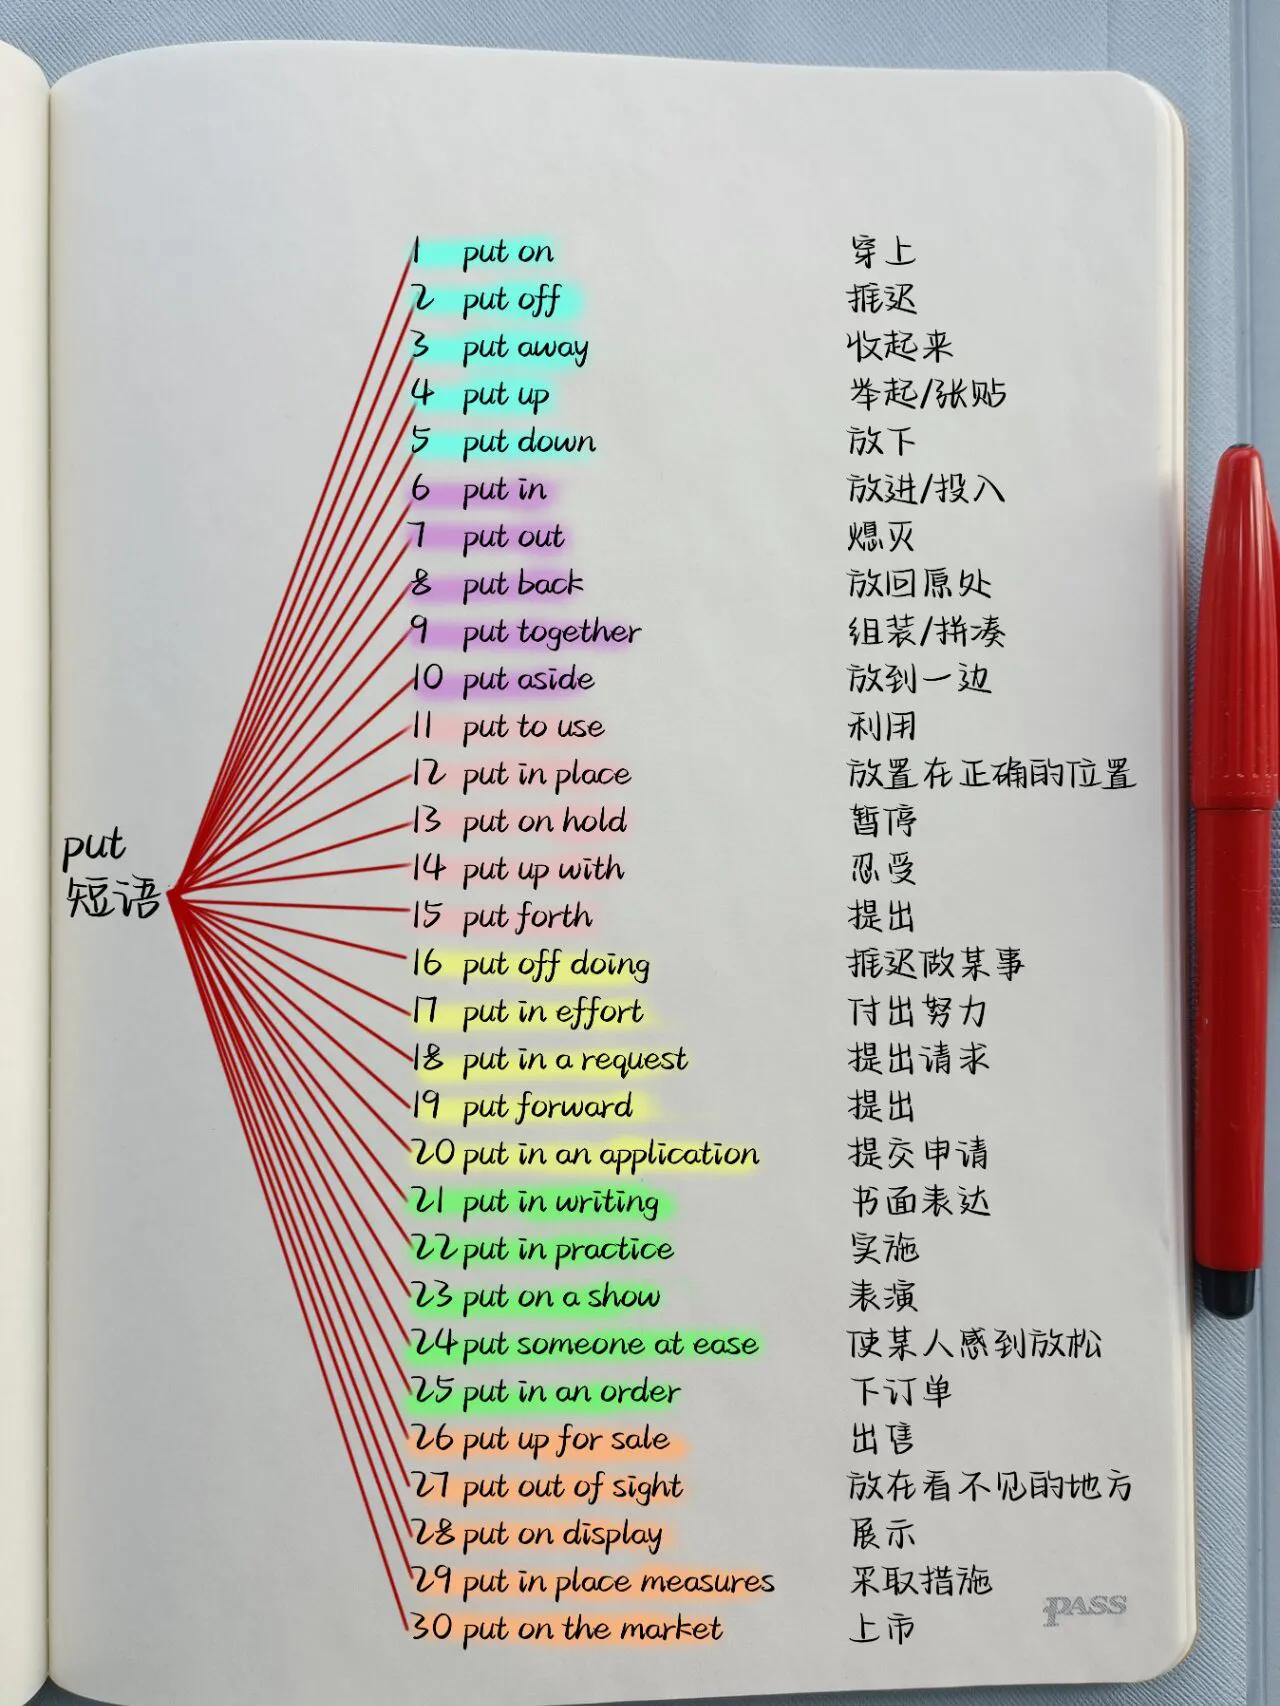 put
短语
1 put on 穿上
2 put off 推迟
3 put away 收起来
4 put up 举起/张贴
5 put down 放下
6 put in 放进/投入
7 put out 熄灭
8 put back 放回原处
9 put together 组装/拼凑
10 put aside 放到一边
11 put to use 利用
12 put in place 放置在正确的位置
13 put on hold 暂停
14 put up with 忍受
15 put forth 提出
16 put off doing 推迟做某事
17 put in effort 付出努力
18 put in a request 提出请求
19 put forward 提出
20 put in an application 提交申请
21 put in writing 书面表达
22 put in practice 实施
23 put on a show 表演
24 put someone at ease 使某人感到放松
25 put in an order 下订单
26 put up for sale 出售
27 put out of sight 放在看不见的地方
28 put on display 展示
29 put in place measures 采取措施
30 put on the market 上市
PASS